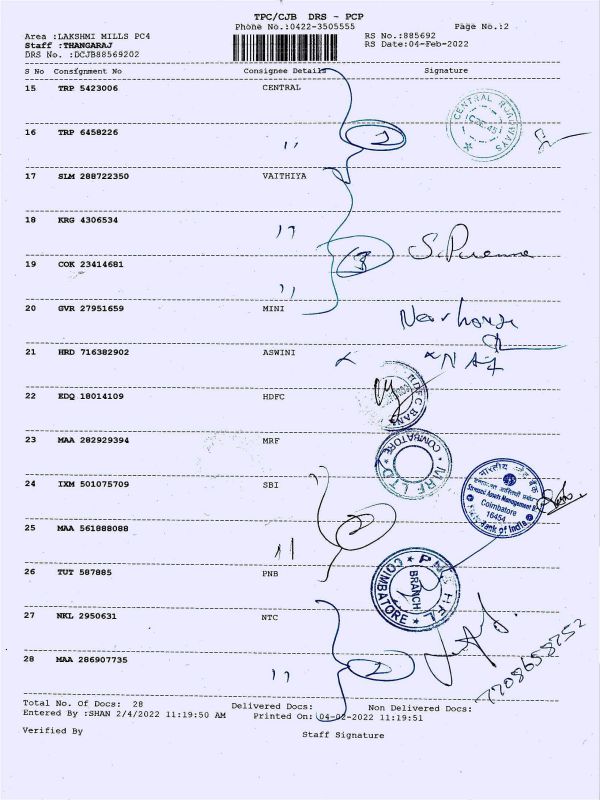 TPC/CJB DRS - PCP
Phone No.:0422-3505555 Page No.:2
Area :LAKSHMI MILLS PC4 RS No.:885692
Staff :THANGARAJ RS Date:04-Feb-2022
DRS No. :DCJB88569202
S No Consignment No Consignee Details Signature
15 TRP 5423006 CENTRAL
CENTRAL ROADWAYS
CBE-45
16 TRP 6458226 ,, 2
17 SLM 288722350 VAITHIYA
18 KRG 4306534 ,,
19 COK 23414681 ,, 3
20 GVR 27951659 MINI
21 HRD 716382902 ASWINI
22 EDQ 18014109 HDFC
HDFC BANK
23 MAA 282929394 MRF
MRF LTD COIMBATORE
24 IXM 501075709 SBI
भारतीय स्टेट बैंक
Stressed Assets Management B
Coimbatore
16454
Bank of India
25 MAA 561888088 ,, 2
26 TUT 587885 PNB
PNB HFL
BRANCH
COIMBATORE
27 NKL 2950631 NTC
28 MAA 286907735 ,, 2
7708658752
Total No. Of Docs: 28 Delivered Docs: Non Delivered Docs:
Entered By :SHAN 2/4/2022 11:19:50 AM Printed On: 04-02-2022 11:19:51
Verified By Staff Signature